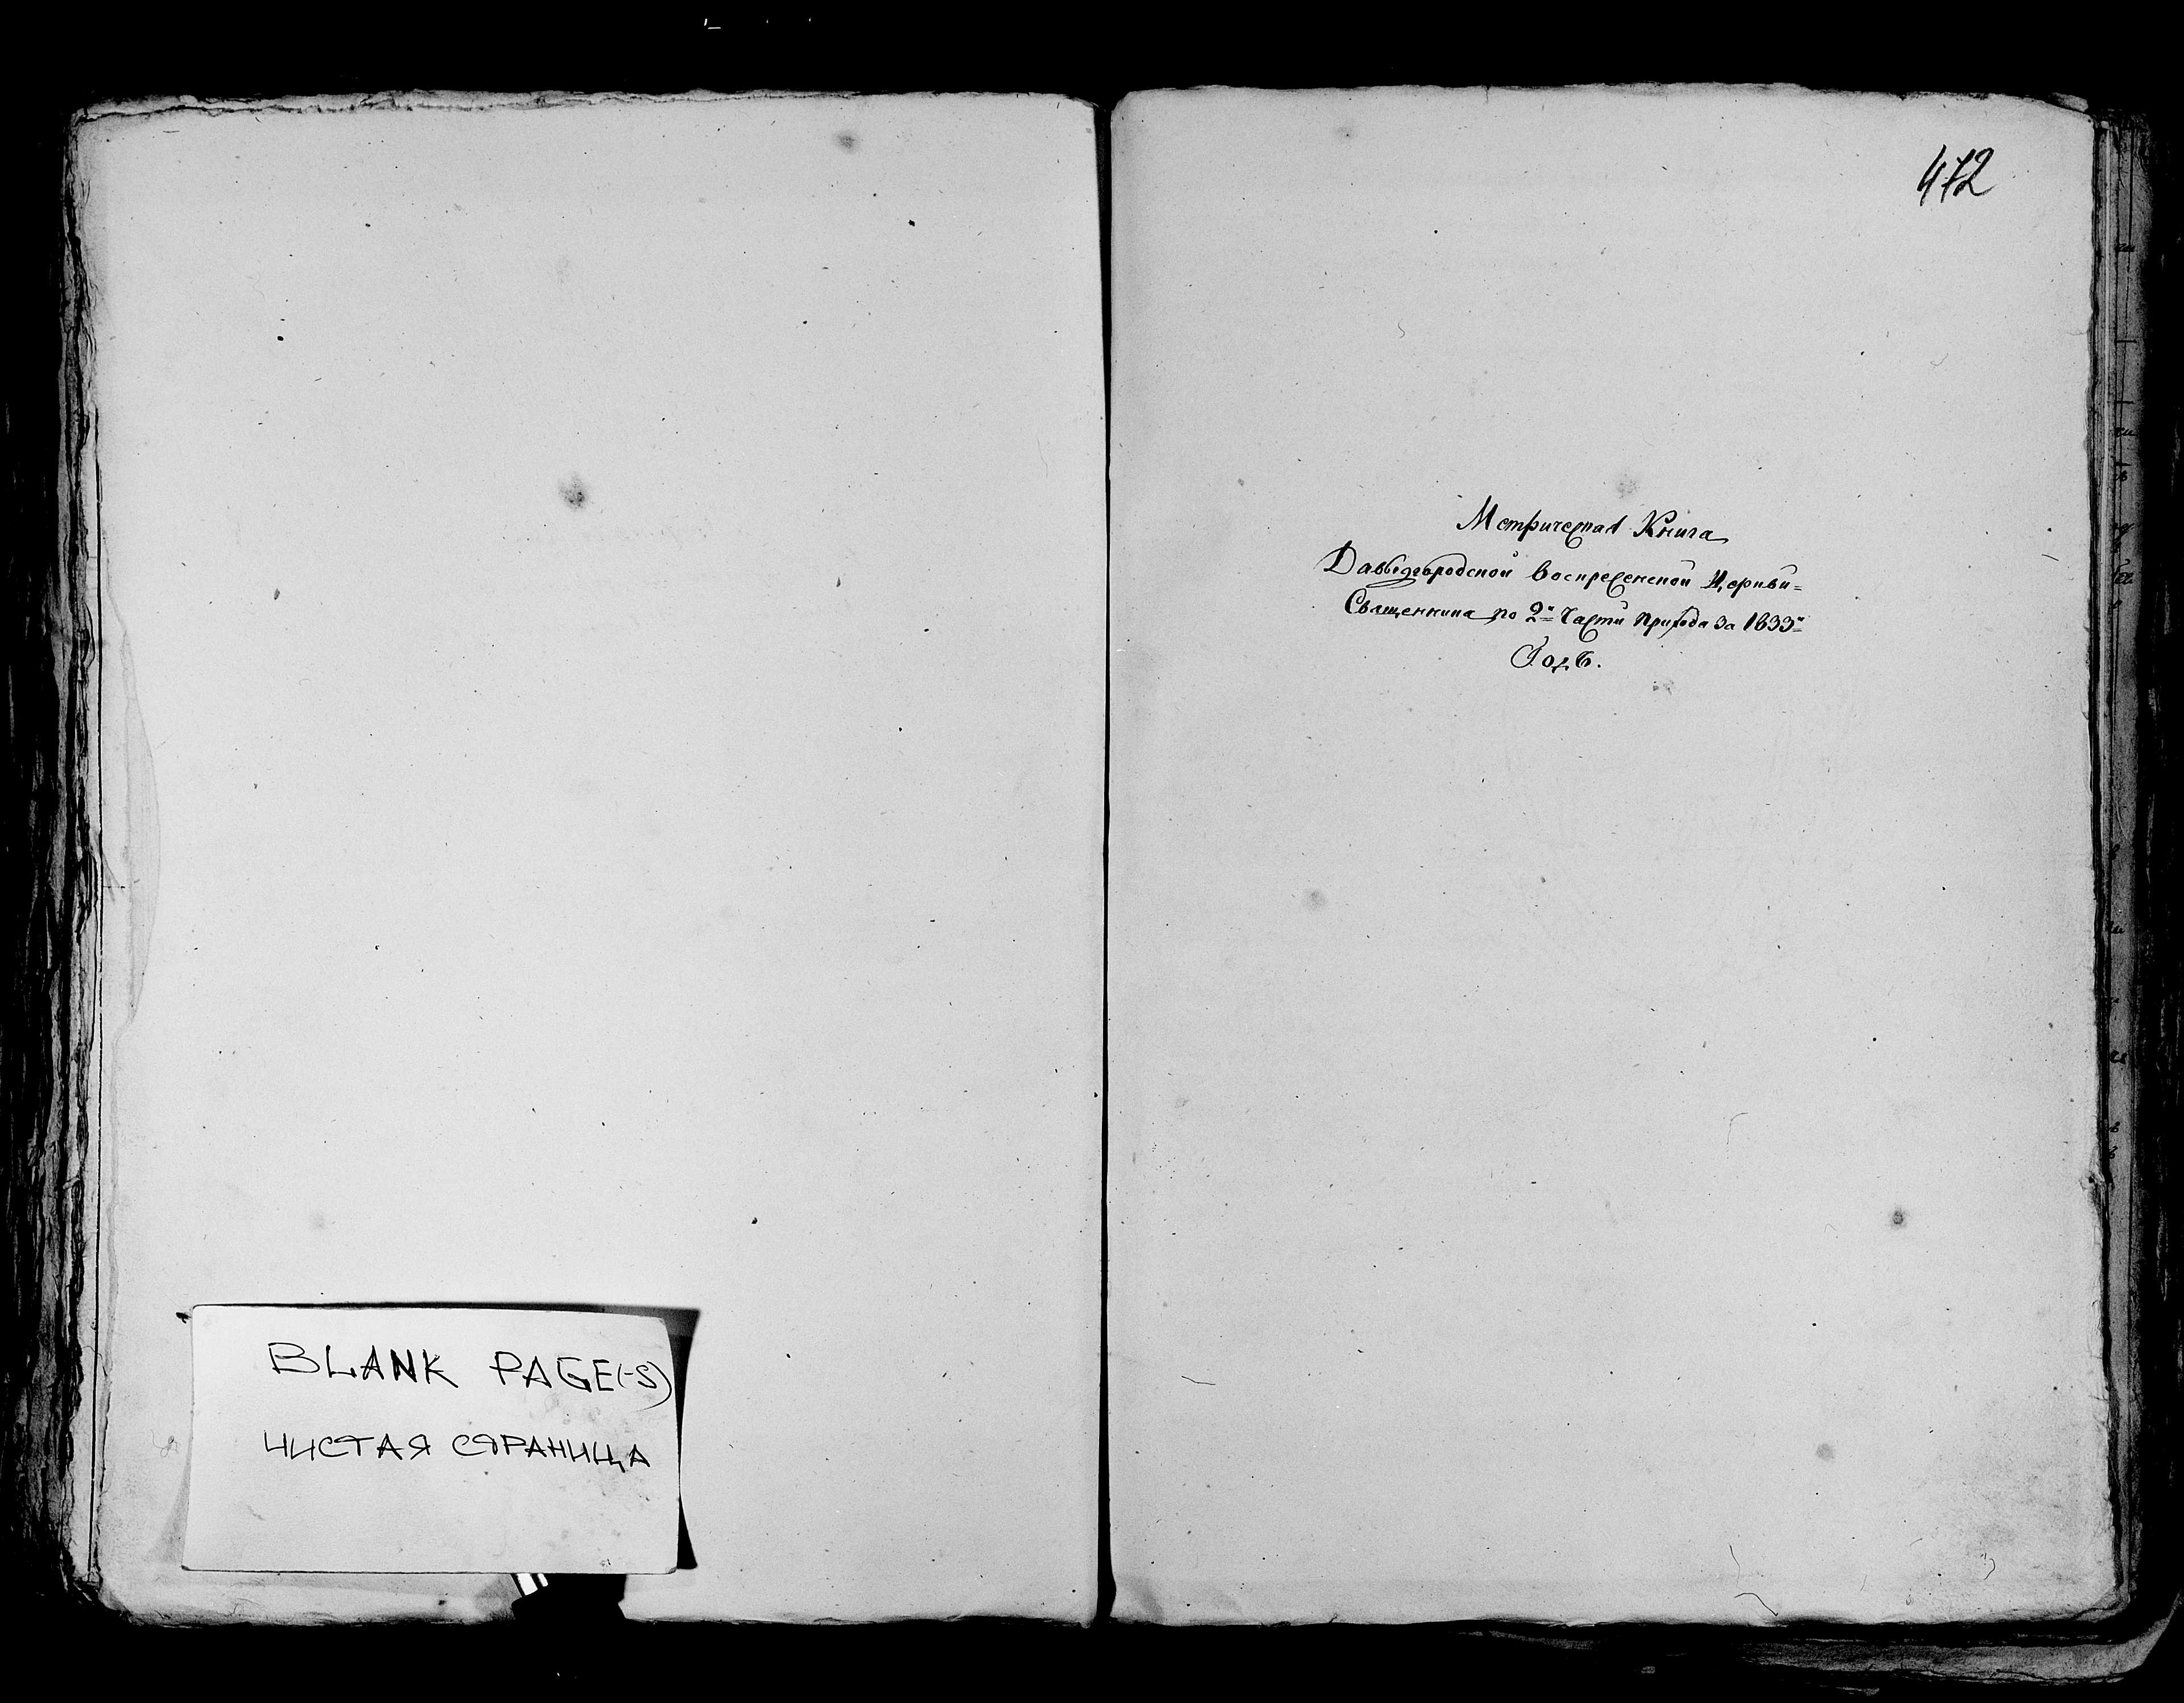 BLANK PAGE(-S)
ЧИСТАЯ СТРАНИЦА
472
Метрическая Книга
Давыдгородской Воскресенской Церкви
Священника по 2й Части Прихода за 1833й
Годъ.